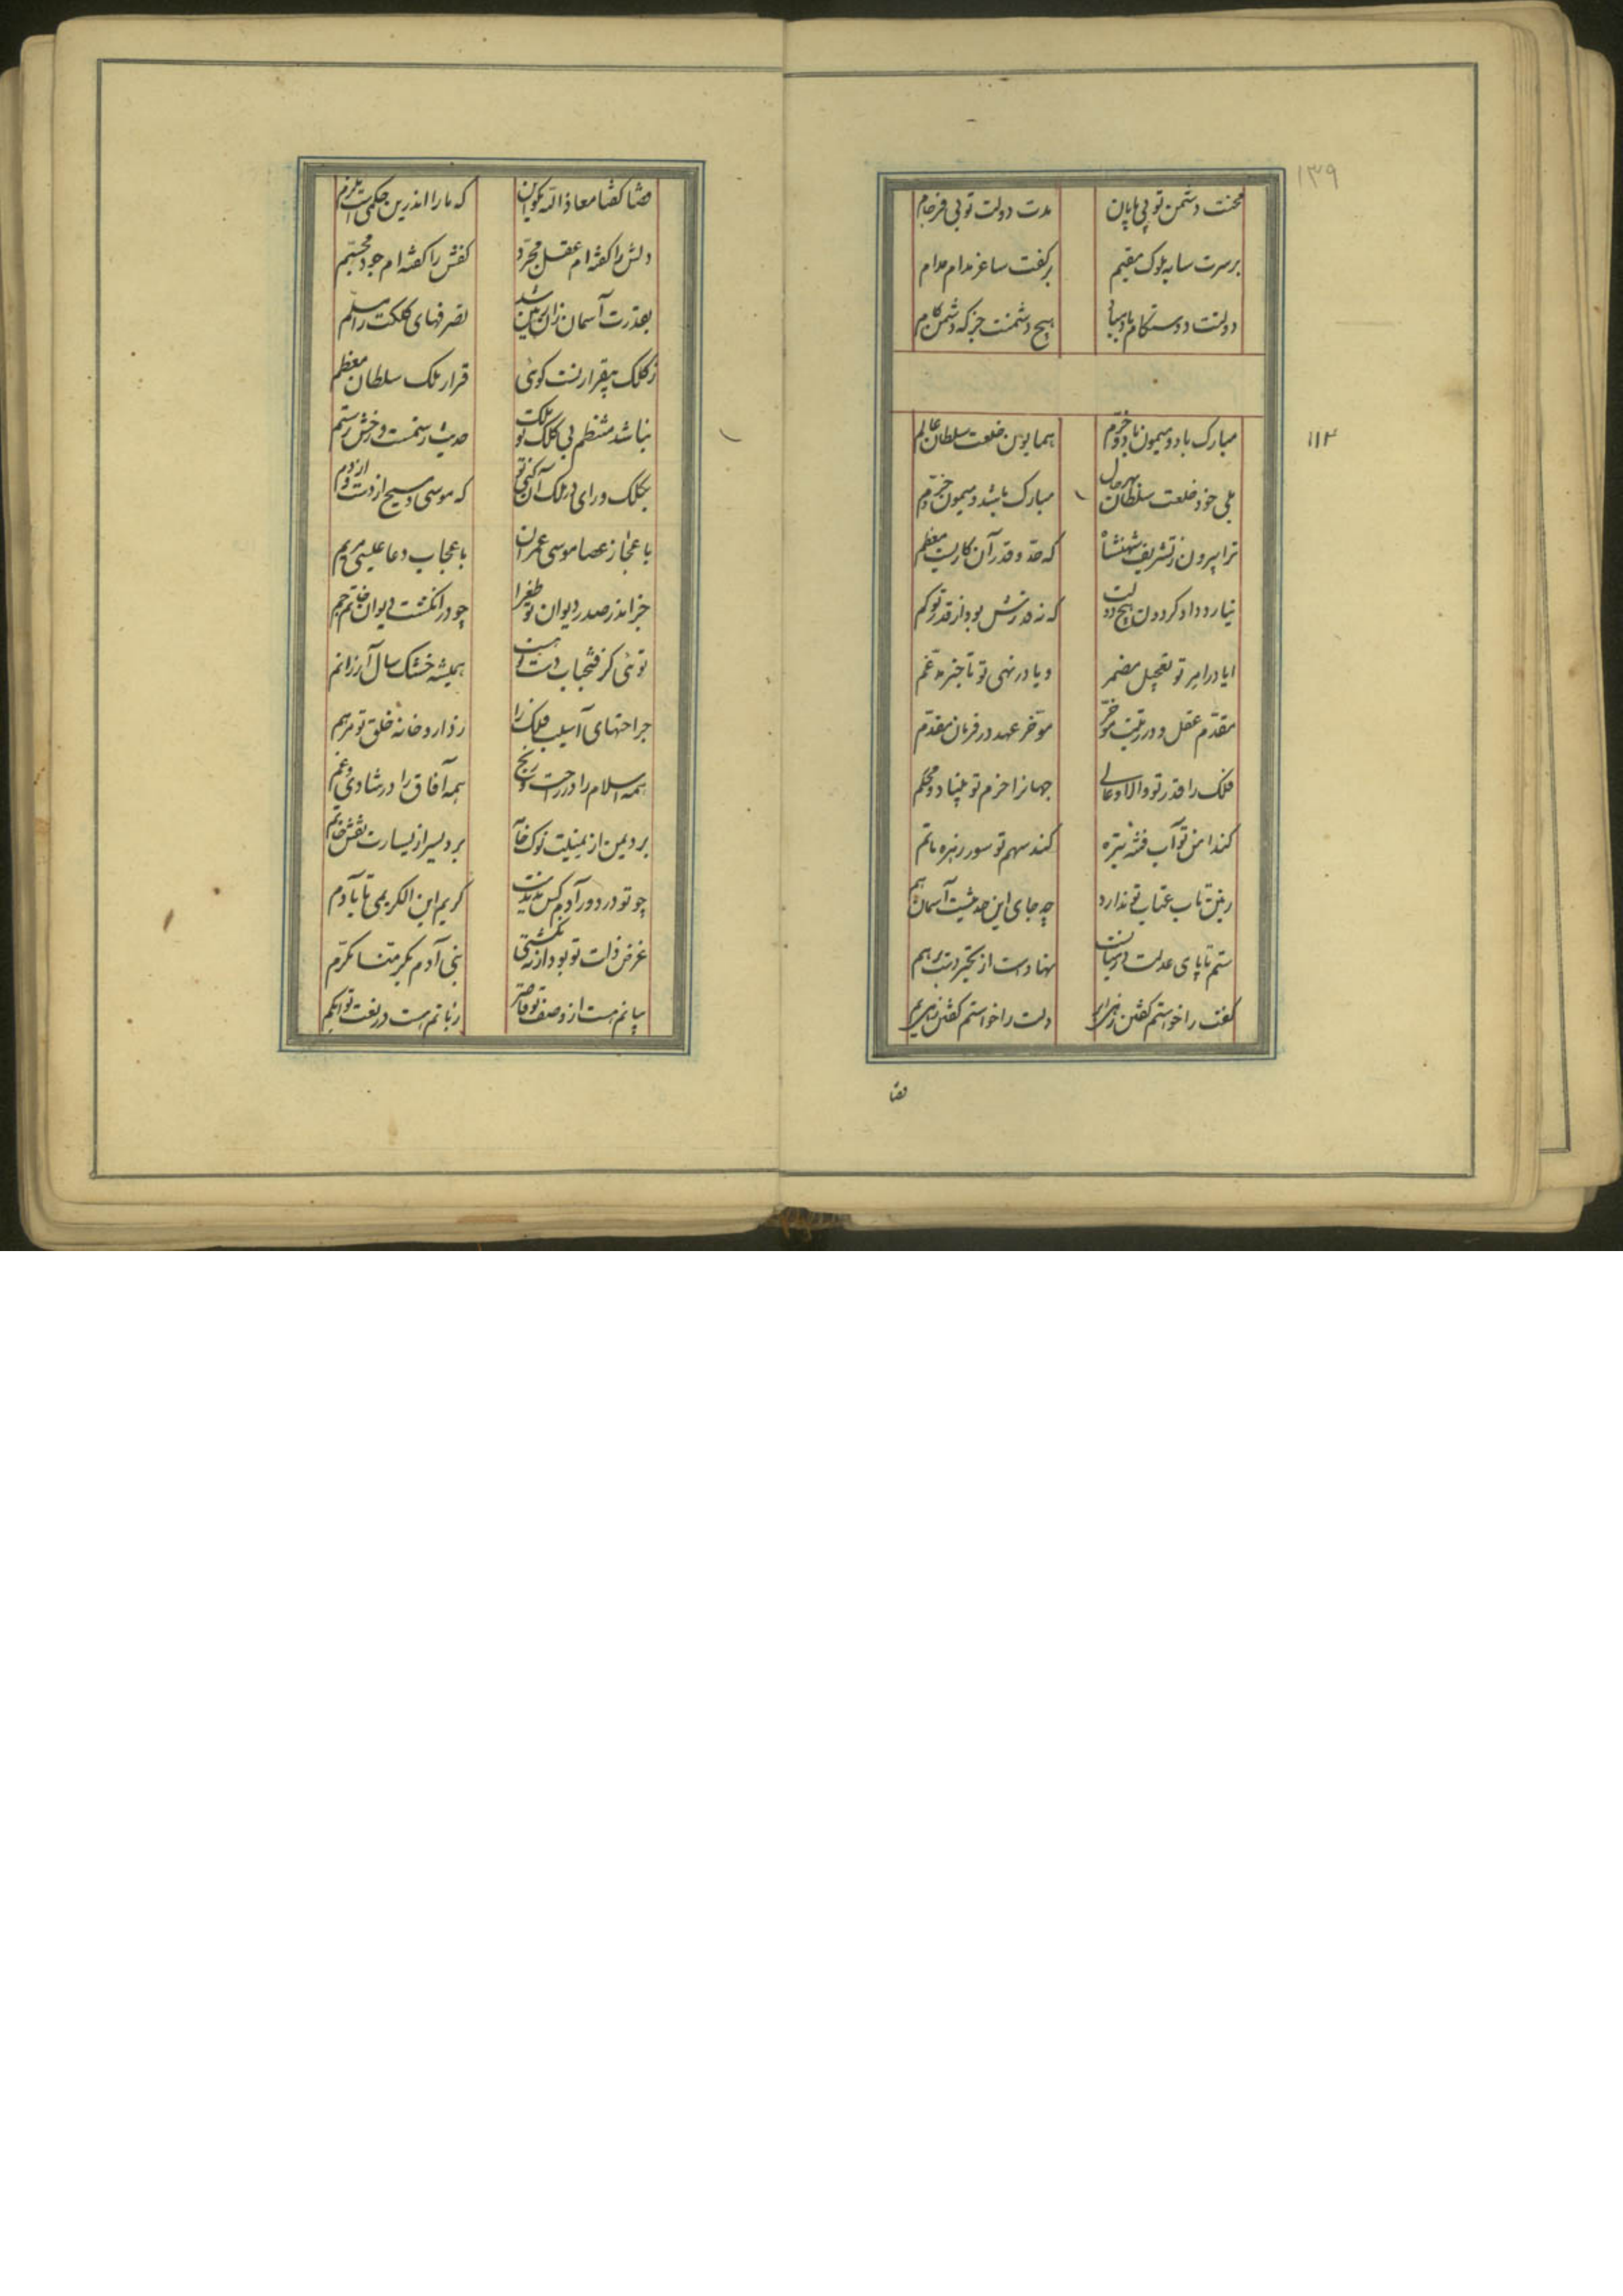 ۱۳۹
محنت دشمن تو بی پایان مدت دولت تو بی فرجام
بر سرت سایه ملوک مقیم بر کفت ساغر مدام مدام
دولتت دوستکام باد هیچ دشمنت جز که دشمن کام
۱۱۳
مبارک باد و میمون باد و خرم همایون خلعت سلطان عالم
بلی خود خلعت سلطان بهر حال مبارک باشد و میمون و خرم
ترا بیرون ز تشریف شهنشاه که حد و قدر آن کاریست معظم
نیارد داد گردون هیچ دولت که نه قدرش بود از قدر تو کم
ایا در امر تو تعجیل مضمر و یا در نهی تو تاخیر مدغم
مقدم عقل و در رتبت موخر موخر عهد و در فرمان مقدم
فلک را قدر تو والا و عالی جهانرا حزم تو بنیاد و محکم
کند امن تو آب فتنه تیره کند سهم تو سور زهره ماتم
زمین تاب عتاب تو ندارد چه جای این حدیثست آسمان هم
ستم تا پای عدلت در میانست نهادست از تحیر دست بر هم
کفت را خواستم گفتن زهی ابر دلت را خواستم گفتن زهی یم
قضا
قضا گفتا معاذ الله مگو این که ما را اندرین حکمی است ملزم
دلش را گفته ام عقل مجرد کفش را گفته ام جود مجسم
بقدرت آسمان زان بر زمین شد تصرفهای کلکت را مسلم
ز کلک بیقرار تست گوئی قرار ملک سلطان معظم
نباشد منتظم بی کلک تو ملک حدیث رستمست و رخش رستم
بکلک و رای در ملک آن کنی تو که موسی و مسیح از دست و از دم
باعجاز عصا موسی عمران باعجاب دعا عیسی مریم
خرامد در صدر دیوان تو طغرا چو در انگشت دیوان خاتم جم
توئی کز فتحباب دست همیشه خشک سال آز را نم
جراحتهای آسیب فلک را ز داروخانه خلق تو مرهم
همه اسلام را در راحت و رنج همه آفاق را در شادی و غم
برد یمن از یمینت نوک خامه برد یسر از یسارت نقش خاتم
چو تو در دور آدم کس ندیدست کریم ابن الکریمی تا بآدم
غرض ذات تو بود ار نه نگشتی بنی آدم بکرمنا مکرم
بیانم هست از وصف تو قاصر زبانم هست در نعت تو ابکم